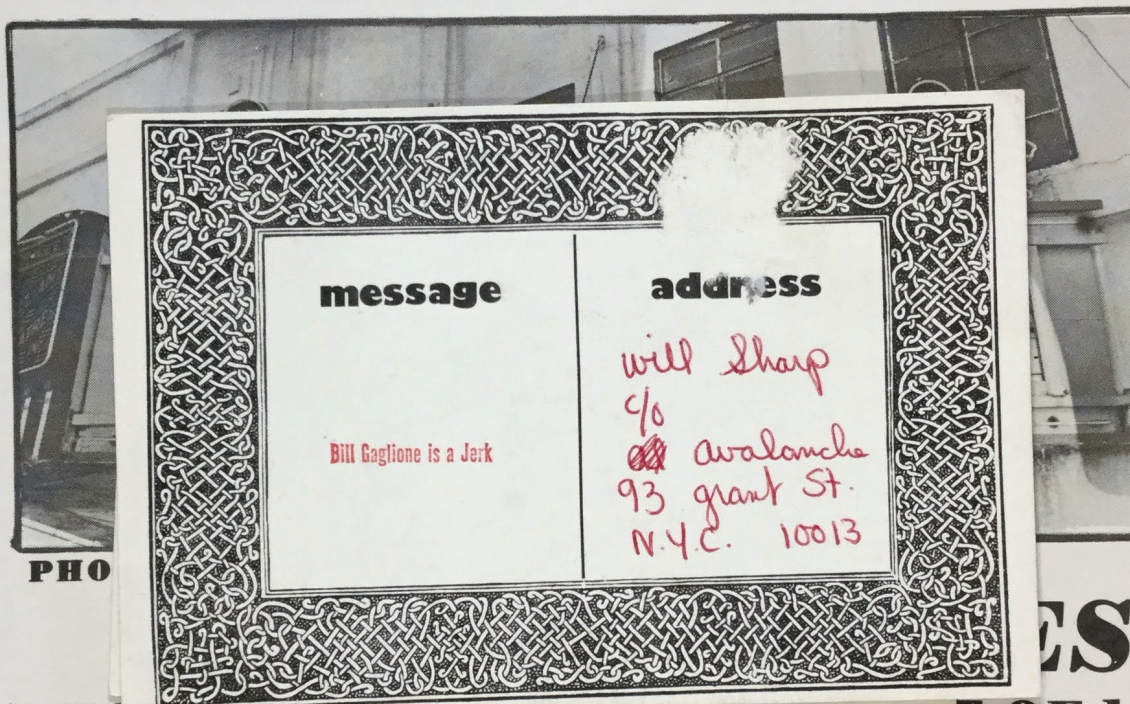 message
address
Bill Gaglione is a Jerk
will Sharp
c/o
avalanche
93 grant St.
N.Y.C. 10013
PHO
ES